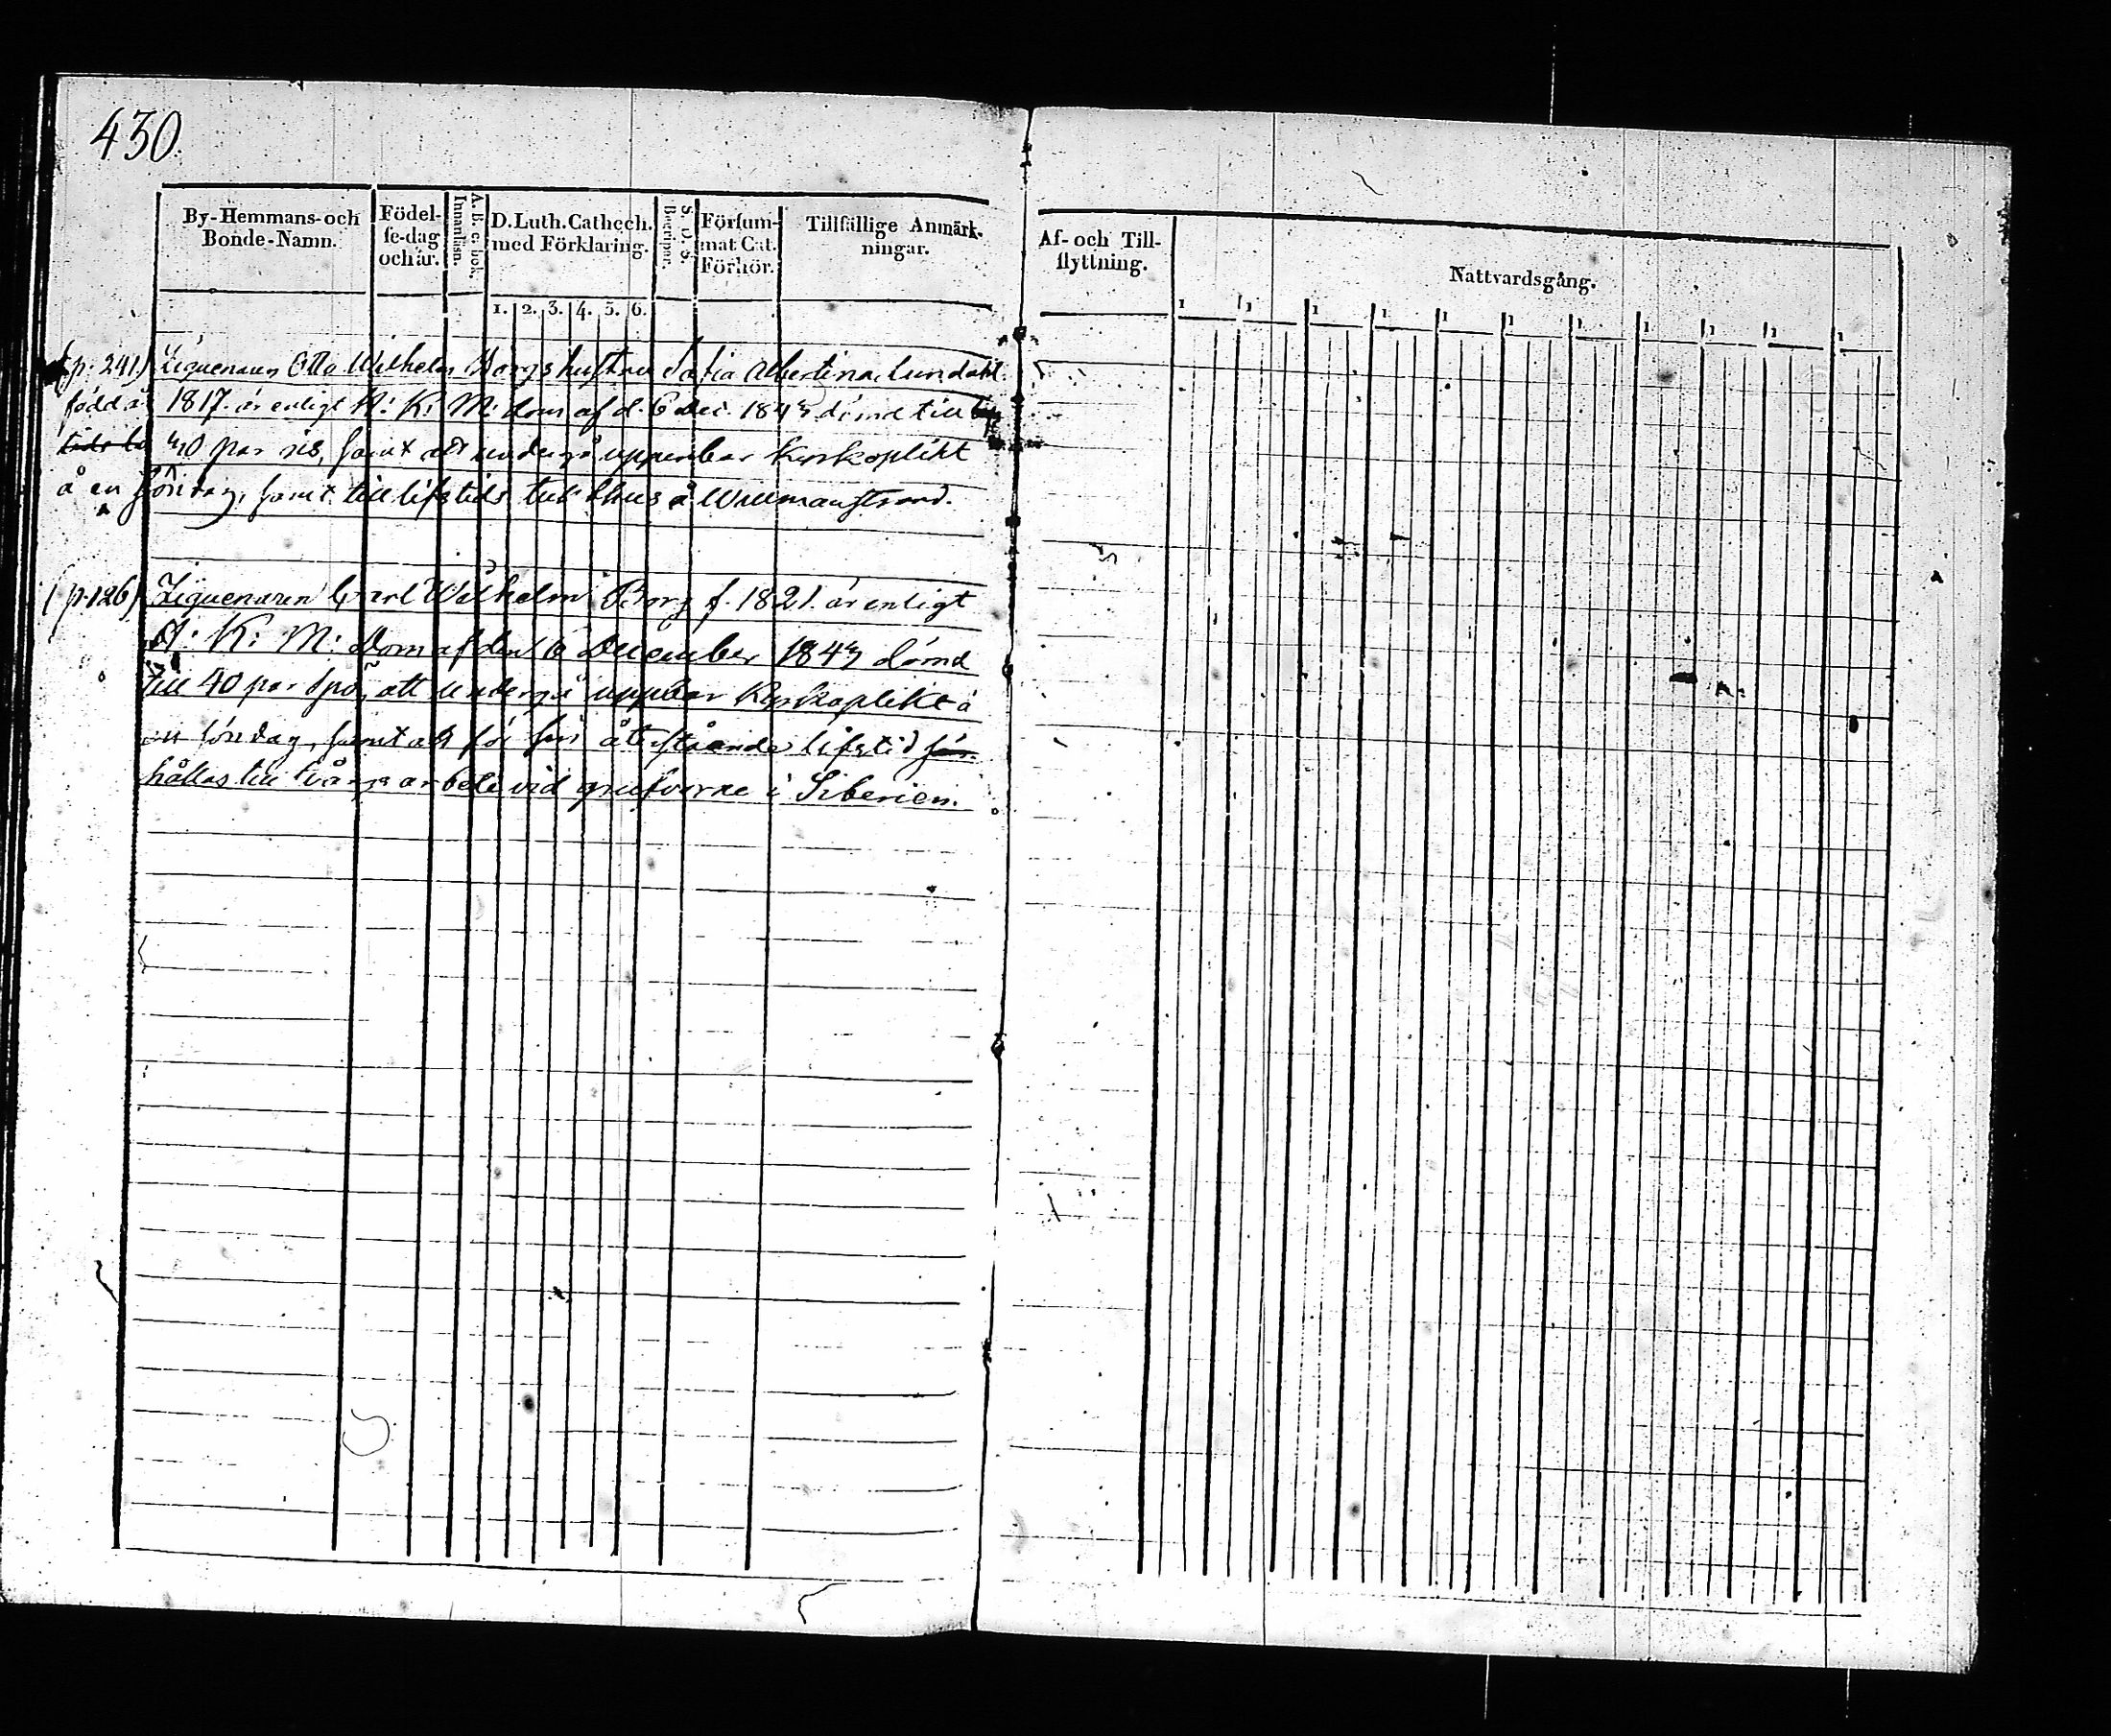 430.
By-Hemmans-och Bonde-Namn.
Födel-se-dag och år.
A. B. c. bok. Innantill.
D. Luth. Cathech. med Förklaring.
1. 2. 3. 4. 5. 6.
Försum-mat Cat. Förhör.
Tillfällige Anmärk-ningar.
Af- och Till-flyttning.
Nattvardsgång.
1 1 1 1 1 1 1 1 1 1 1
(p. 241.) Ziguenaren Otto Wilhelm Borgs hustru Sofia Albertina Lundahl
född år 1817. är enligt H: K: M: dom af d. 6 Dec. 1843 dömd till
40 par ris, samt att undergå uppenbar kyrkoplikt
å en söndag, samt till lifstids tukthus å Willmanstrand.
(p. 126) Ziguenaren Carl Wilhelm Borg f. 1821. är enligt
H: K: M: Dom af den 6 December 1843 dömd
till 40 par spö, att undergå uppbar Kyrkoplikt å
en söndag, samt att för sin återstående lifstid
hållas till tvångsarbete vid grufvorne i Siberien.